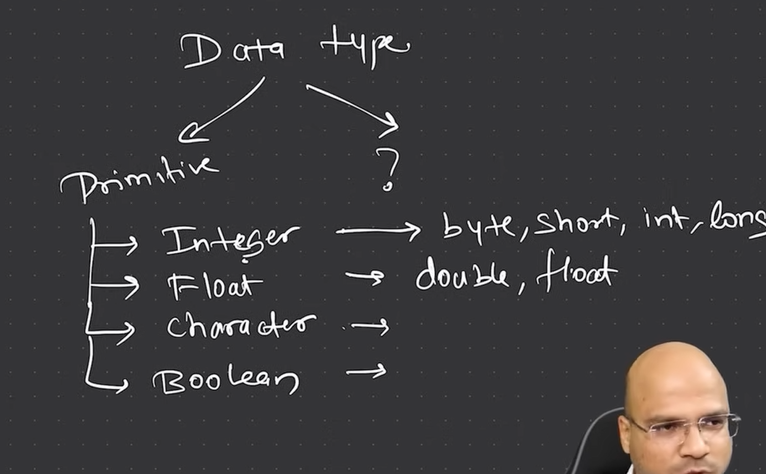 Data type
Primitive
?
Integer → byte, short, int, long
Float → double, float
character →
Boolean →